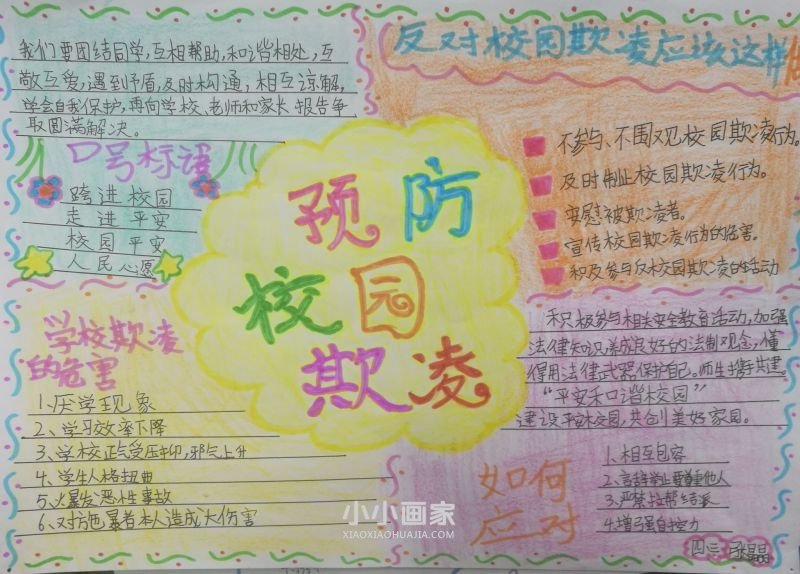 我们要团结同学,互相帮助,和谐相处,互
敬互爱,遇到矛盾,及时构通,相互谅解,
学会自我保护,再向学校、老师和家长报告争
取圆满解决。
口号标语
跨进校园
走进平安
校园平安
人民心愿
学校欺凌
的危害
1、厌学现象
2、学习效率下降
3、学校正气受压抑,邪气上升
4、学生人格扭曲
5、火暴发恶性事故
6、对施暴者本人造成大伤害
预防
校园
欺凌
反对校园欺凌应该这样
不参与、不围观校园欺凌行为。
及时制止校园欺凌行为。
安慰被欺凌者。
宣传校园欺凌行为的危害。
积极参与反校园欺凌的活动
积极参与相关安全教育活动,加强
法律知识养成良好的法制观念,懂
得用法律武器保护自己。师生携手共建。
“平安和谐校园”
建设平安校园,共创美好家园。
如何
应对
1、相互包容
2、言辞举止要尊重他人
3、严禁拉帮结派
4、增强自控力
四三
小小画家
XIAOXIAOHUAJIA.COM